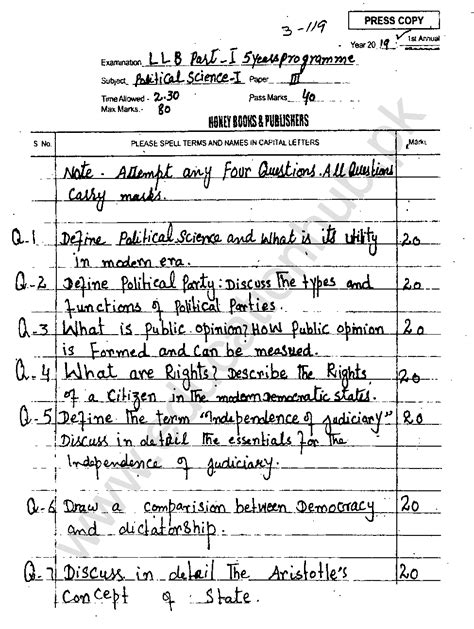 3-119
PRESS COPY
1st Annual
Year 2019
Examination LLB Part-I 5 years programme
Subject Political Science-I Paper III
Time Allowed - 2.30 Pass Marks 40
Max Marks.- 80
HONEY BOOKS & PUBLISHERS
S No. PLEASE SPELL TERMS AND NAMES IN CAPITAL LETTERS Marks
Note - Attempt any Four Questions. All Questions
carry marks.
Q-1 Define Political Science and what is its utility 20
in modern era.
Q-2 Define Political Party: Discuss the types and 20
functions of Political Parties.
Q-3 What is Public opinion? How Public opinion 20
is Formed and can be measued.
Q-4 What are Rights? Describe the Rights 20
of a Citizen in the modern Democratic states.
Q-5 Define the term "Independence of judiciary" 20
Discuss in detail the essentials for the
Independence of judiciary.
Q-6 Draw a comparision between Democracy 20
and dictatorship.
Q-7 Discuss in detail The Aristotle's 20
Concept of State.